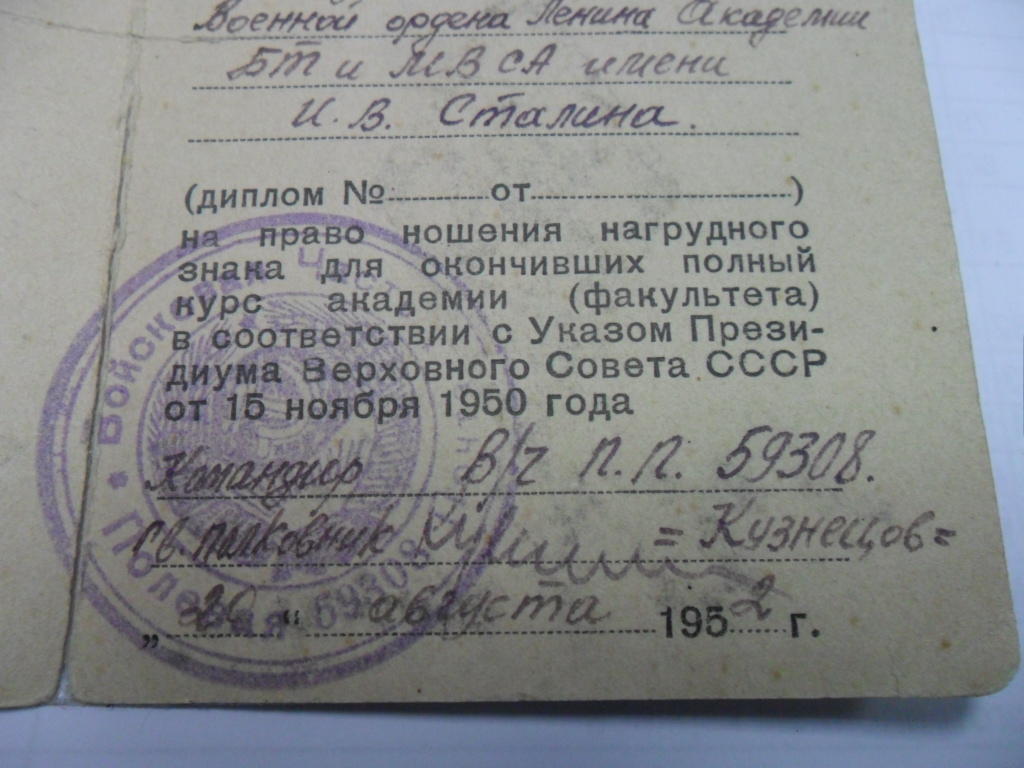 Военной ордена Ленина Академии
БТ и МВ СА имени
И. В. Сталина.
(диплом № от )
на право ношения нагрудного
знака для окончивших полный
курс академии (факультета)
в соответствии с Указом Прези-
диума Верховного Совета СССР
от 15 ноября 1950 года
Командир В/ч П.П. 59308.
Гв. полковник = Кузнецов =
„ 20 “ августа 1952 г.
Войсковая Часть
Полевая почта 59308